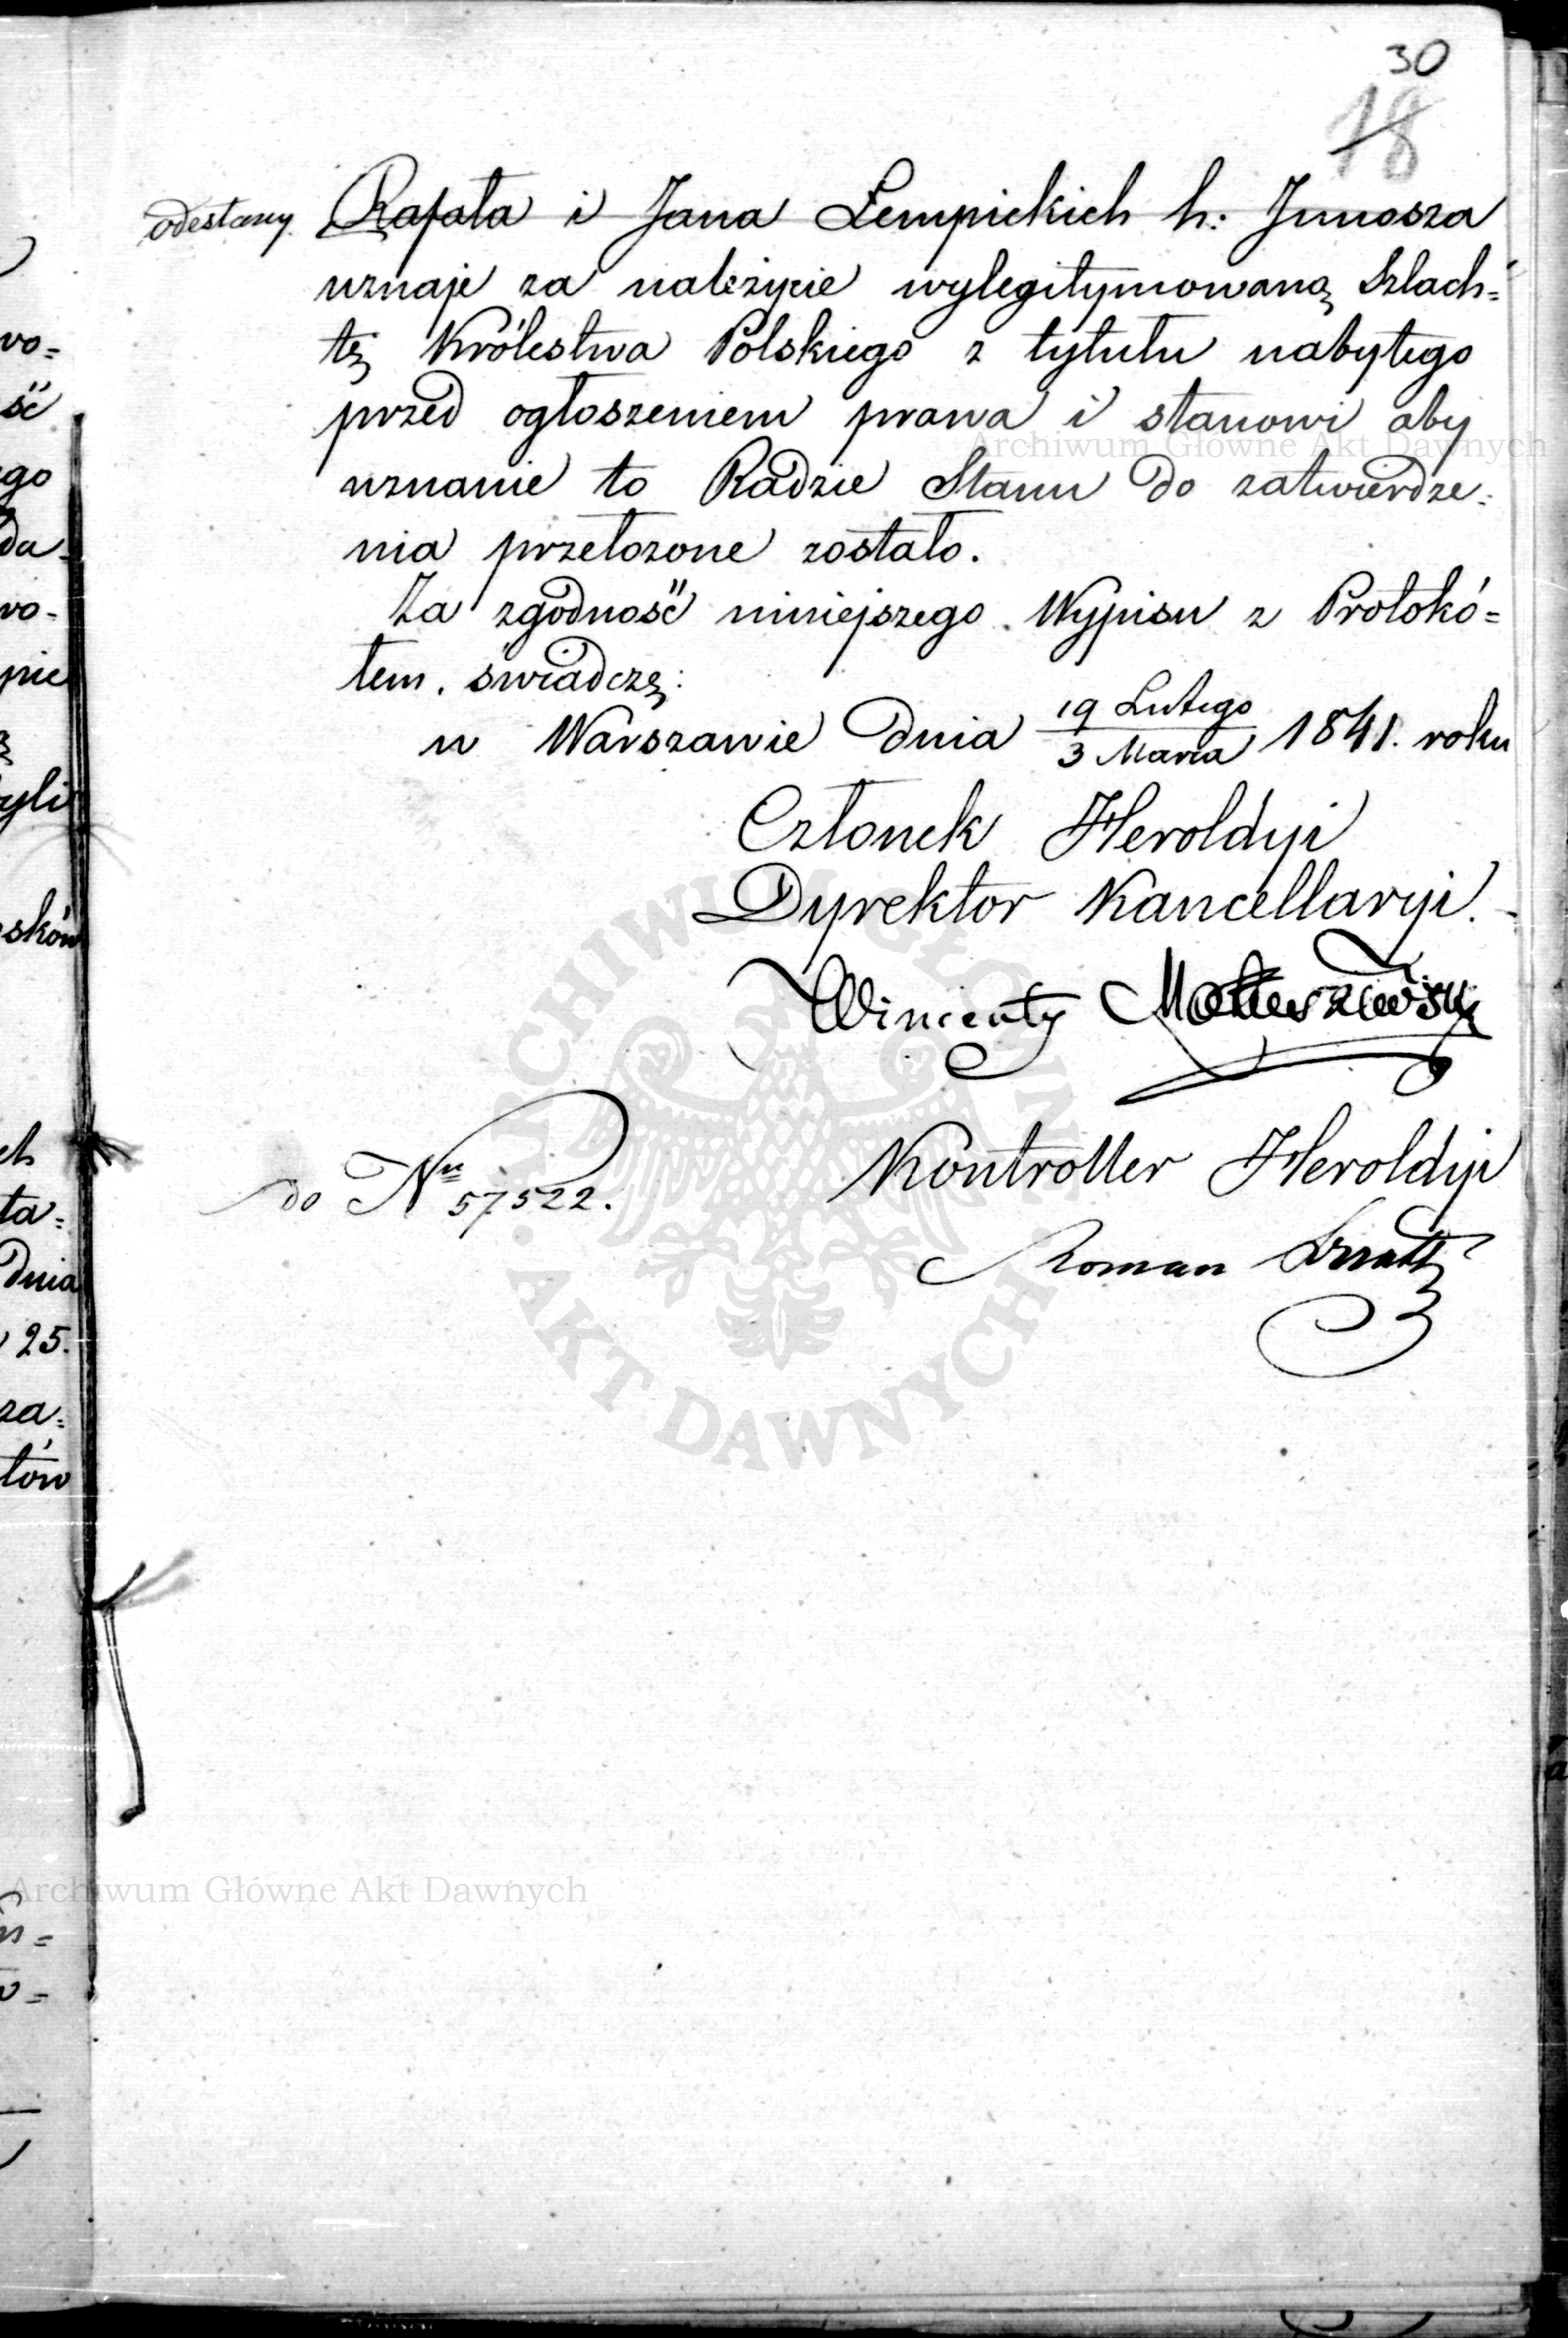 30
18
odesłany. Rafała i Jana Łempickich h: Junosza
uznaje za należycie wylegitymowaną Szlach=
tę Królestwa Polskiego z tytułu nabytego
przed ogłoszeniem prawa i stanowi aby
uznanie to Radzie Stanu do zatwierdze=
nia przełożone zostało.
Za zgodność niniejszego Wypisu z Protokó=
łem. świadczę:
w Warszawie dnia 19 Lutego / 3 Marca 1841. roku
Członek Heroldyi
Dyrektor Kancellaryi.
Wincenty Matuszewski
do Nru 57522.
Kontroller Heroldyi
Roman
Archiwum Główne Akt Dawnych
ARCHIWUM GŁÓWNE AKT DAWNYCH
Archiwum Główne Akt Dawnych
wo=
ść
ego
wo-
pnie
yli
sków
ch
ta=
dnia
25.
za=
tów